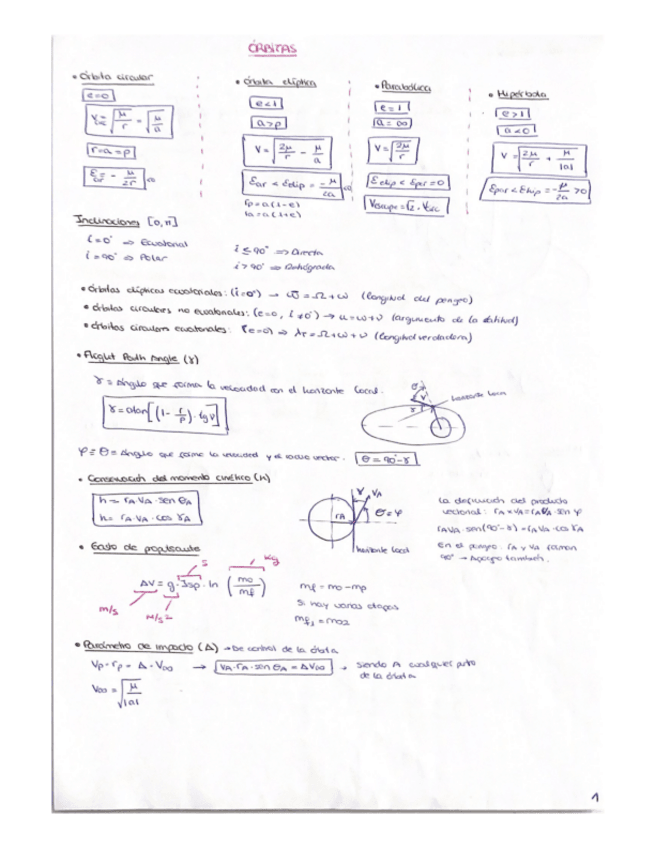 ÓRBITAS
• Órbita circular
e=0
Vc = √(μ/r) = √(μ/a)
r=a=p
= - μ/2r
• Órbita elíptica
e<1
a>p
V = √(2μ/r - μ/a)
Ecir < Eelip = -μ/2a <0
rp=a(1-e)
ra=a(1+e)
• Parabólica
e=1
a=∞
V=√(2μ/r)
Eelip < Epar=0
Vescape=√2·Vcirc
• Hipérbola
e>1
a<0
V = √(2μ/r + μ/|a|)
Epar<Ehip=-μ/2a >0
Inclinaciones [0,π]
i=0° ⇒ Ecuatorial
i=90° ⇒ Polar
i≤90° ⇒ Directa
i>90° ⇒ Retrógrada
• órbitas elípticas ecuatoriales: (i=0°) → ω̄ = Ω+ω (longitud del perigeo)
• órbitas circulares no ecuatoriales: (e=0, i≠0°) → u=ω+ν (argumento de la latitud)
• órbitas circulares ecuatoriales: (e=0) ⇒ λr=Ω+ω+ν (longitud verdadera)
• Flight Path Angle (γ)
γ = Ángulo que forma la velocidad con el horizonte local.
γ=atan[(1- r/p)·tgν]
θ
V
γ
horizonte local
φ=θ= Ángulo que forma la velocidad y el radio vector. θ=90°-γ
• Conservación del momento cinético (h)
h= rA·VA·sen θA
h= rA·VA·cos γA
γ VA
θ=φ
rA
horizonte local
La definición del producto
vectorial: rA×VA=rA·VA·sin φ
rAVA·sen(90°-γ)=rA·VA·cos γA
En el perigeo: rA y VA forman
90° → Apogeo también.
• Gasto de propulsante
s
kg
ΔV = g·Isp·ln (mo/mf)
m/s
m/s²
mf=mo-mp
Si hay varias etapas
mf1=mo2
• Parámetro de impacto (Δ) → De control de la órbita
Vp·rp = Δ·V∞ → VA·rA·sen θA = ΔV∞ → siendo A cualquier punto
de la órbita
V∞=√(μ/|a|)
1